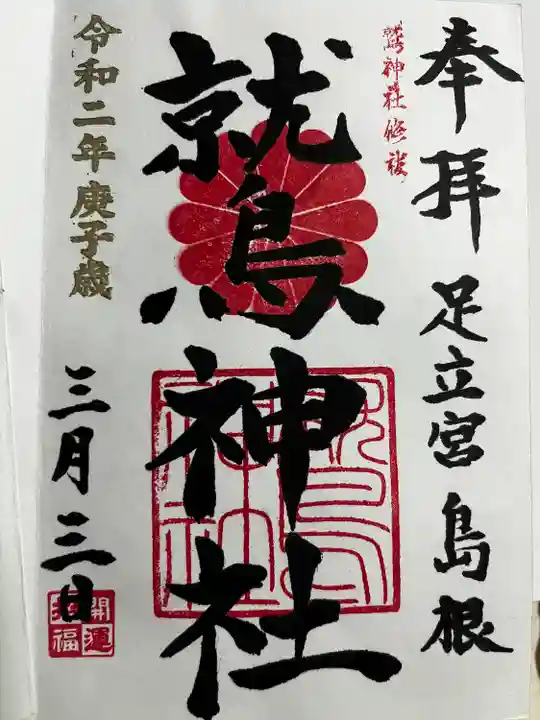 奉拝 足立宮 島根
鷲神社修祓
鷲神社
令和二年庚子歳
三月三日
開運
招福
鷲神社